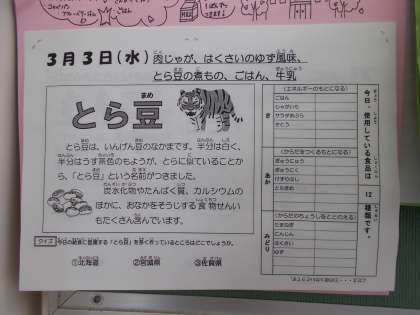 3月3日(水) 肉じゃが、はくさいのゆず風味、
とら豆の煮もの、ごはん、牛乳
とら豆
とら豆は、いんげん豆のなかまです。半分は白く、
半分はうす茶色のもようが、とらに似ていることか
ら、「とら豆」という名前がつきました。
炭水化物やたんぱく質、カルシウムの
ほかに、おなかをそうじする食物せんい
もたくさん含んでいます。
クイズ 今日の給食に登場する「とら豆」を多く作っているところはどこでしょうか。
①北海道 ②宮城県 ③佐賀県
今日、使用している食品は 12 種類です。
き
(エネルギーのもとになる)
ごはん
じゃがいも
サラダあぶら
さとう
あか
(からだをつくるもとになる)
ぎゅうにゅう
ぎゅうにく
とらまめ
みどり
(からだのちょうしをととのえる)
たまねぎ
にんじん
はくさい
ゆず